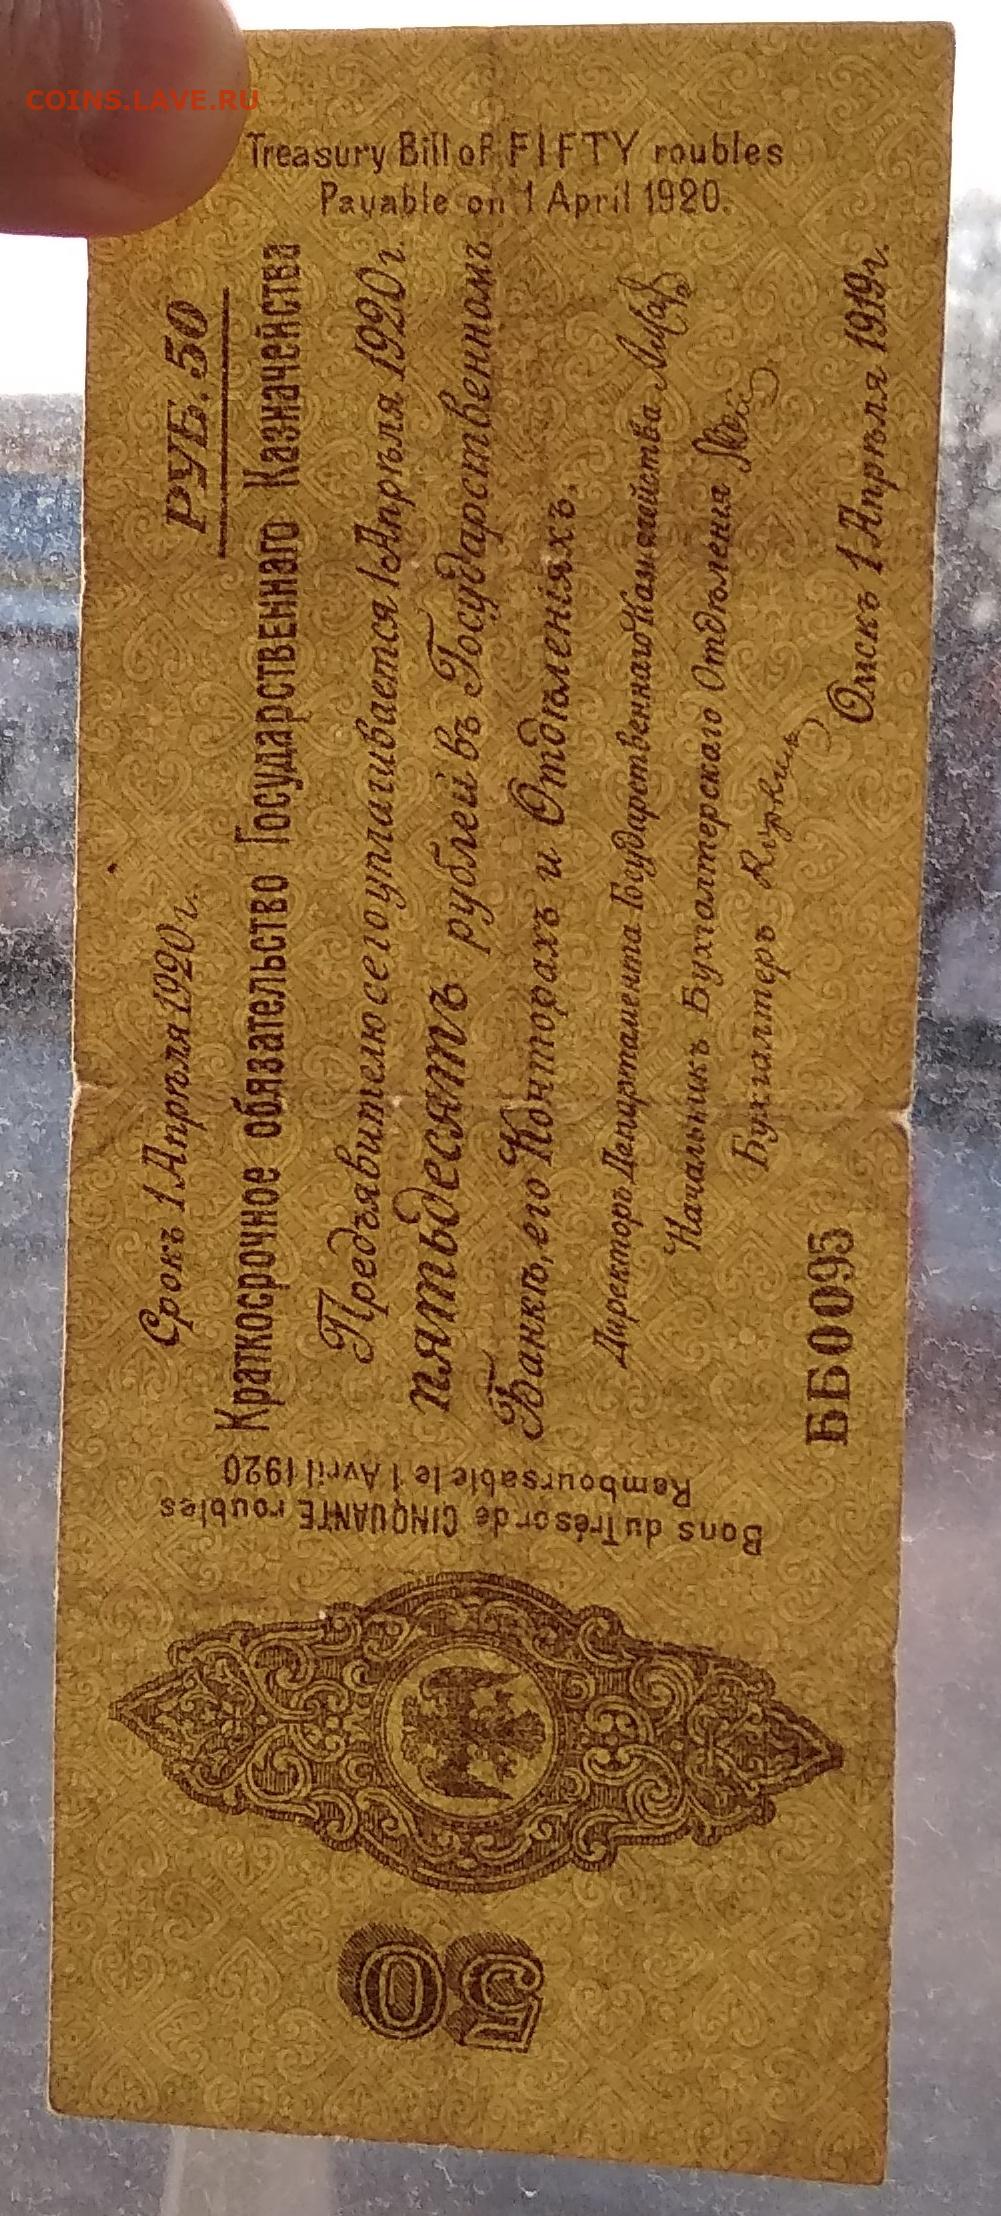 COINS.LAVE.RU
Treasury Bill of FIFTY roubles
Payable on 1 April 1920.
Срокъ 1 Апрѣля 1920 г.
РУБ. 50
Краткосрочное обязательство Государственнаго Казначейства
Предъявителю сего уплачивается 1 Апрѣля 1920 г.
пятьдесятъ рублей въ Государственномъ
Банкѣ, его Конторахъ и Отдѣленіяхъ.
Директоръ Департамента Государственнаго Казначейства
Начальникъ Бухгалтерскаго Отдѣленія
Бухгалтеръ
Омскъ 1 Апрѣля 1919 г.
ББ0095
Bons du Trésor de CINQUANTE roubles
Remboursable le 1 Avril 1920
50